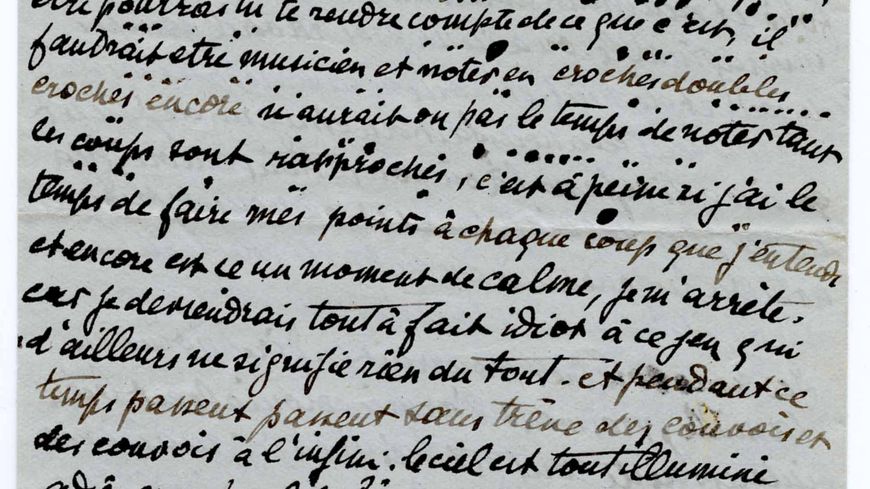 pourras tu te rendre compte de ce que c'est, il
faudrait etre musicien et notes en croches doubles
croches encore n'aurait on pas le temps de notes tant
les coups sont rapprochés, c'est à peine si j'ai le
temps de faire mes points à chaque coup que j'entends
et encore est ce un moment de calme, je m'arrête.
car je deviendrais tout à fait idiot à ce jeu qui
d'ailleurs ne signifie rien du tout. et pendant ce
temps passent passent sans trêve des convois et
des convois à l'infini. le ciel est tout illuminé